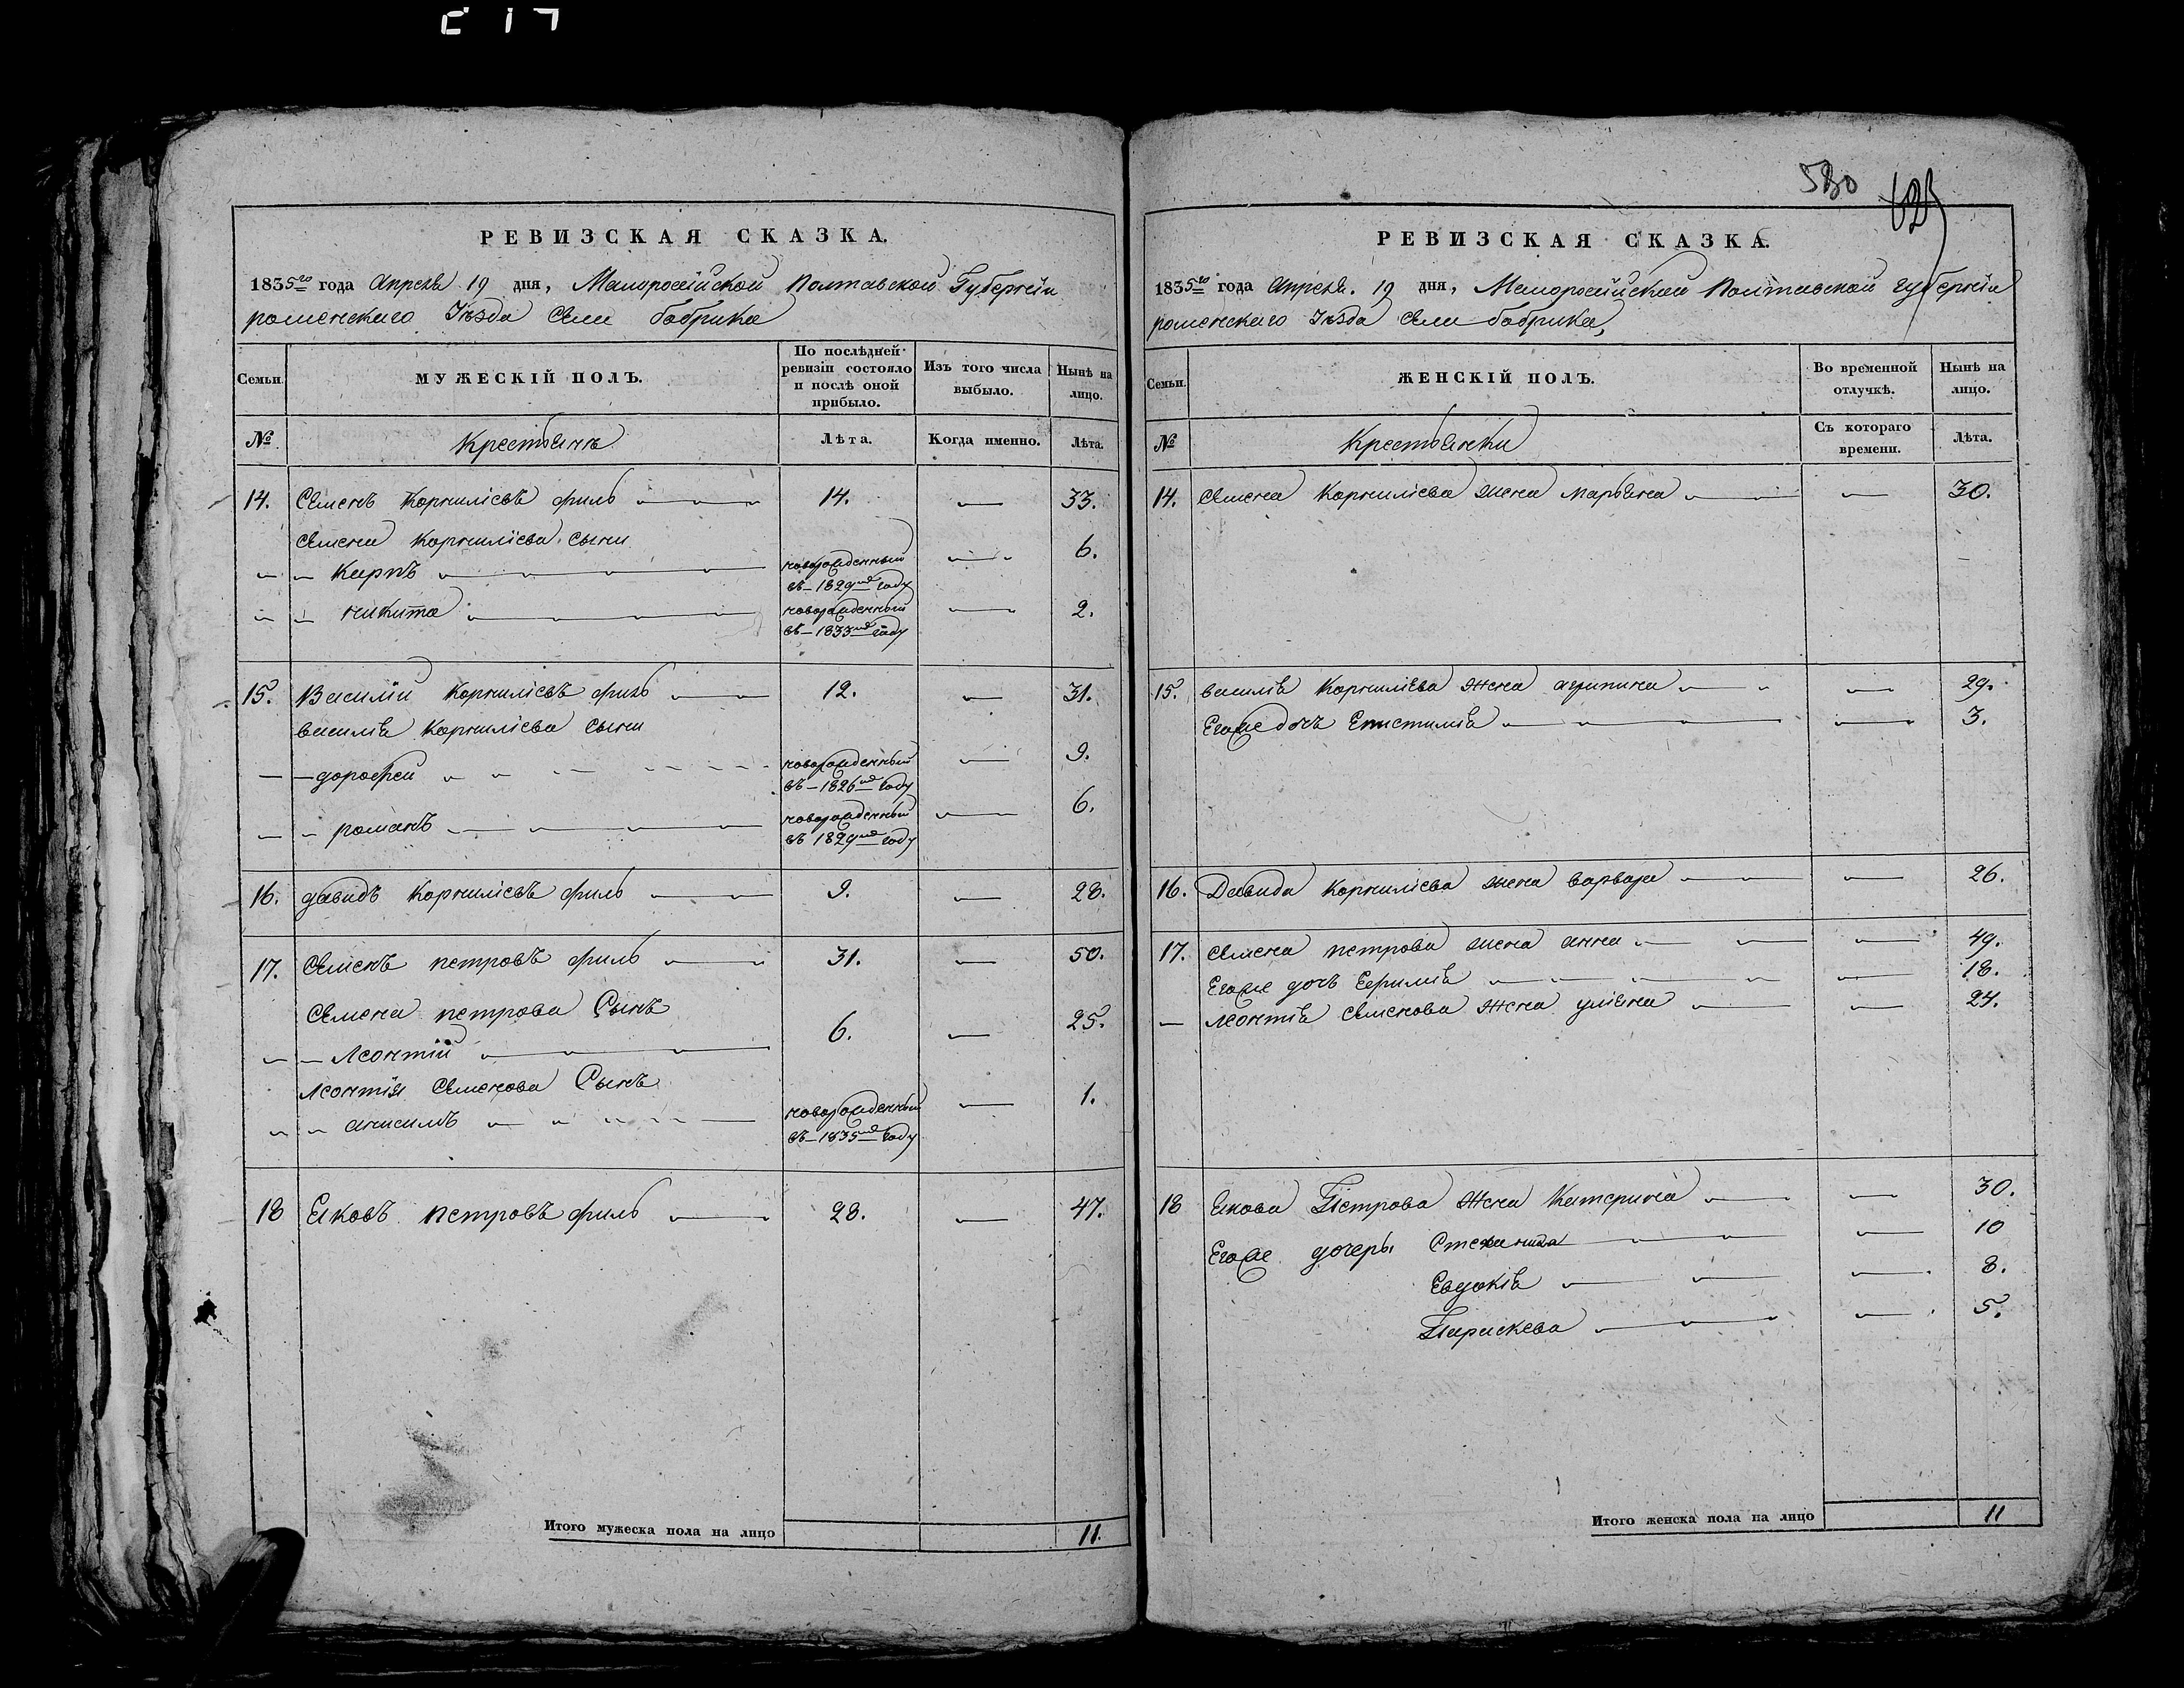 РЕВИЗСКАЯ СКАЗКА.
1835го года Апреля 19 дня, Малоросiйской Полтавской Губернiи
роменскаго Уѣзда Села бобрика
Семьи.
МУЖЕСКІЙ ПОЛЪ.
По послѣдней ревизіи состояло и послѣ оной прибыло.
Изъ того числа выбыло.
Нынѣ на лицо.
№
Крестьянѣ
Лѣта.
Когда именно.
Лѣта.
14. Семенъ Корнилiевъ филь 14. — 33.
Семена Корнилiева сыны
— Карпъ новорожденный въ 1829мъ году — 6.
— никита новорожденный въ 1833мъ году — 2.
15. Василiй Корнилiевъ филь 12. — 31.
василiя Корнилiева сыны
— дорофей новорожденный въ 1826мъ году — 9.
— романъ новорожденный въ 1829мъ году — 6.
16. давидъ Корнилiевъ филь 9. — 28.
17. Семенъ петровъ филь 31. — 50.
Семена петрова Сынъ
— Леонтiй 6. — 25.
Леонтiя Семенова Сынъ
— анисимъ новорожденный въ 1835мъ году — 1.
18 Яковъ петровъ филь 28. — 47.
Итого мужеска пола на лицо 11.
530
РЕВИЗСКАЯ СКАЗКА.
1835го года Апреля. 19 дня, Малоросiйской Полтавской губернiи
роменскаго Уѣзда Села бобрика,
Семьи.
ЖЕНСКІЙ ПОЛЪ.
Во временной отлучкѣ.
Нынѣ на лицо.
№
Крестьянки
Съ котораго времени.
Лѣта.
14. Семена Корнилiева жена марьяна — 30.
15. василiя Корнилiева жена агрипина — 29.
Егоже дочь Епистимiя — 3.
16. Давида Корнилiева жена варвара — 26.
17. Семена петрова жена анна — 49.
Егоже дочь Ефимiя — 18.
— Леонтiя Семенова жена улiяна — 24.
18 Якова Петрова жена Катерина — 30.
Егоже дочеры Степанида — 10
Евдокiя — 8.
Параскева — 5.
Итого женска пола на лицо 11